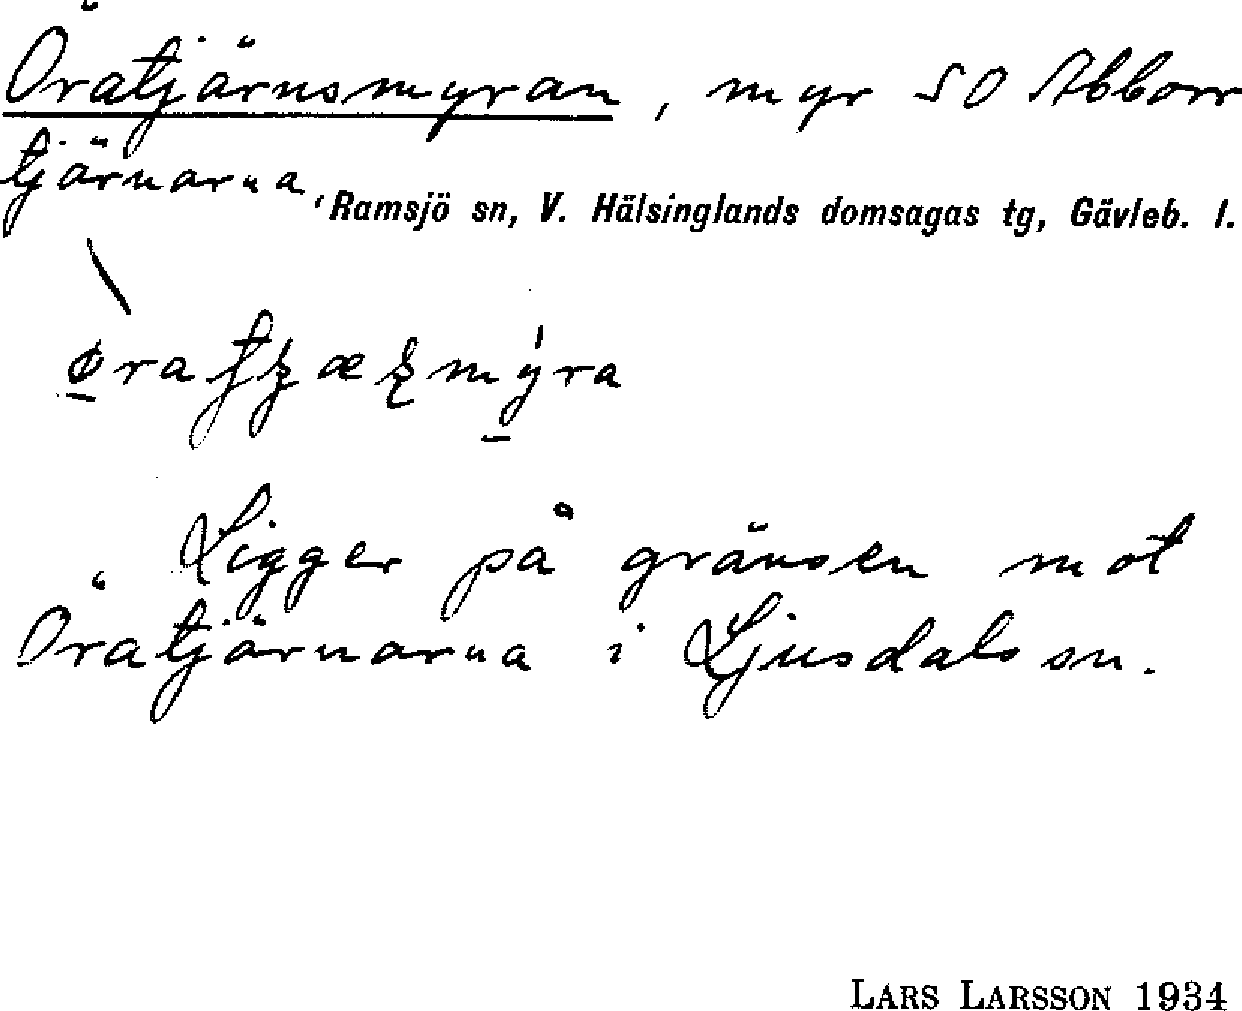 Öratjärnsmyran, myr SO Abborr
tjärnarna,
Ramsjö sn, V. Hälsinglands domsagas tg, Gävleb. l.
Ligger på gränsen mot
Öratjärnarna i Ljusdals sn.
LARS LARSSON 1934